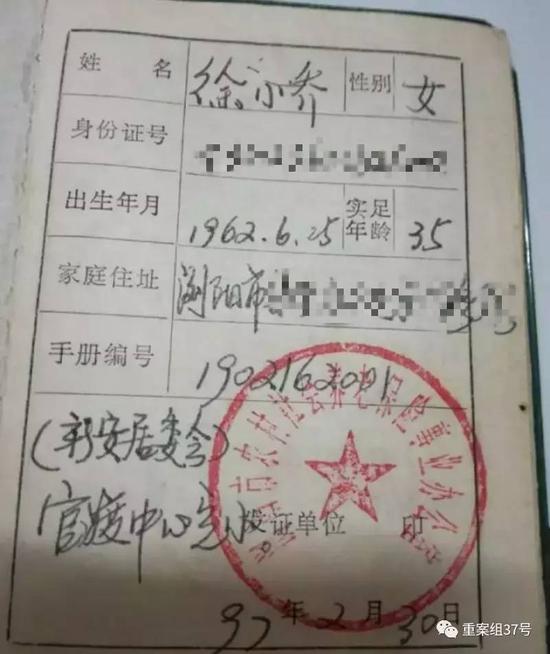 姓名 徐小乔 性别 女
身份证号
出生年月 1962.6.25 实足年龄 35
家庭住址 浏阳市
手册编号 1902162001
(新安居委会)
官渡中心完小
市农村社会养老保险事业办公
发证单位 印
97年2月30日
重案组37号